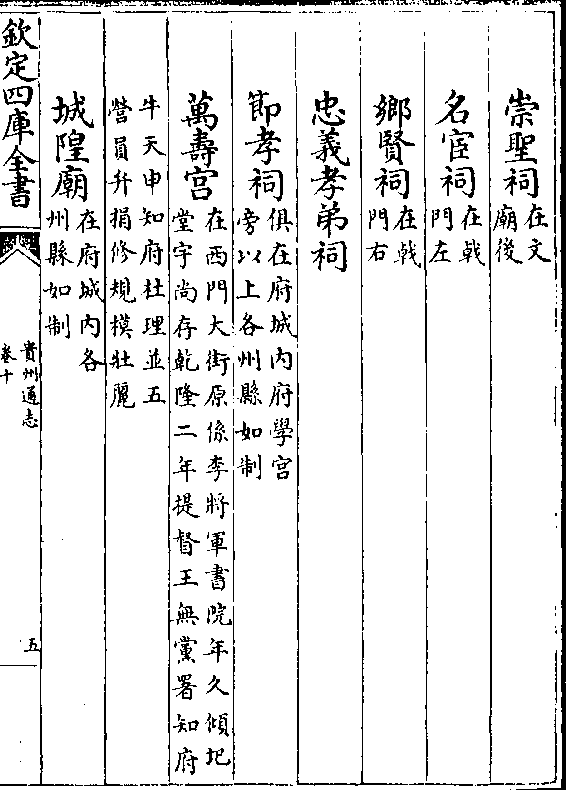 崇聖祠在文
廟後
名宦祠在㦸
門左
鄉賢祠在㦸
門右
忠義孝弟祠
節孝祠俱在府城内府學宫
旁以上各州縣如制
萬壽宫在西門大街原係李將軍書院年久傾圮
堂宇尚存乾隆二年提督王無黨署知府
牛天申知府杜理並五
營員弁捐修規模壯麗
城隍廟在府城内各
州縣如制
欽定四庫全書
貴州通志
卷十
五